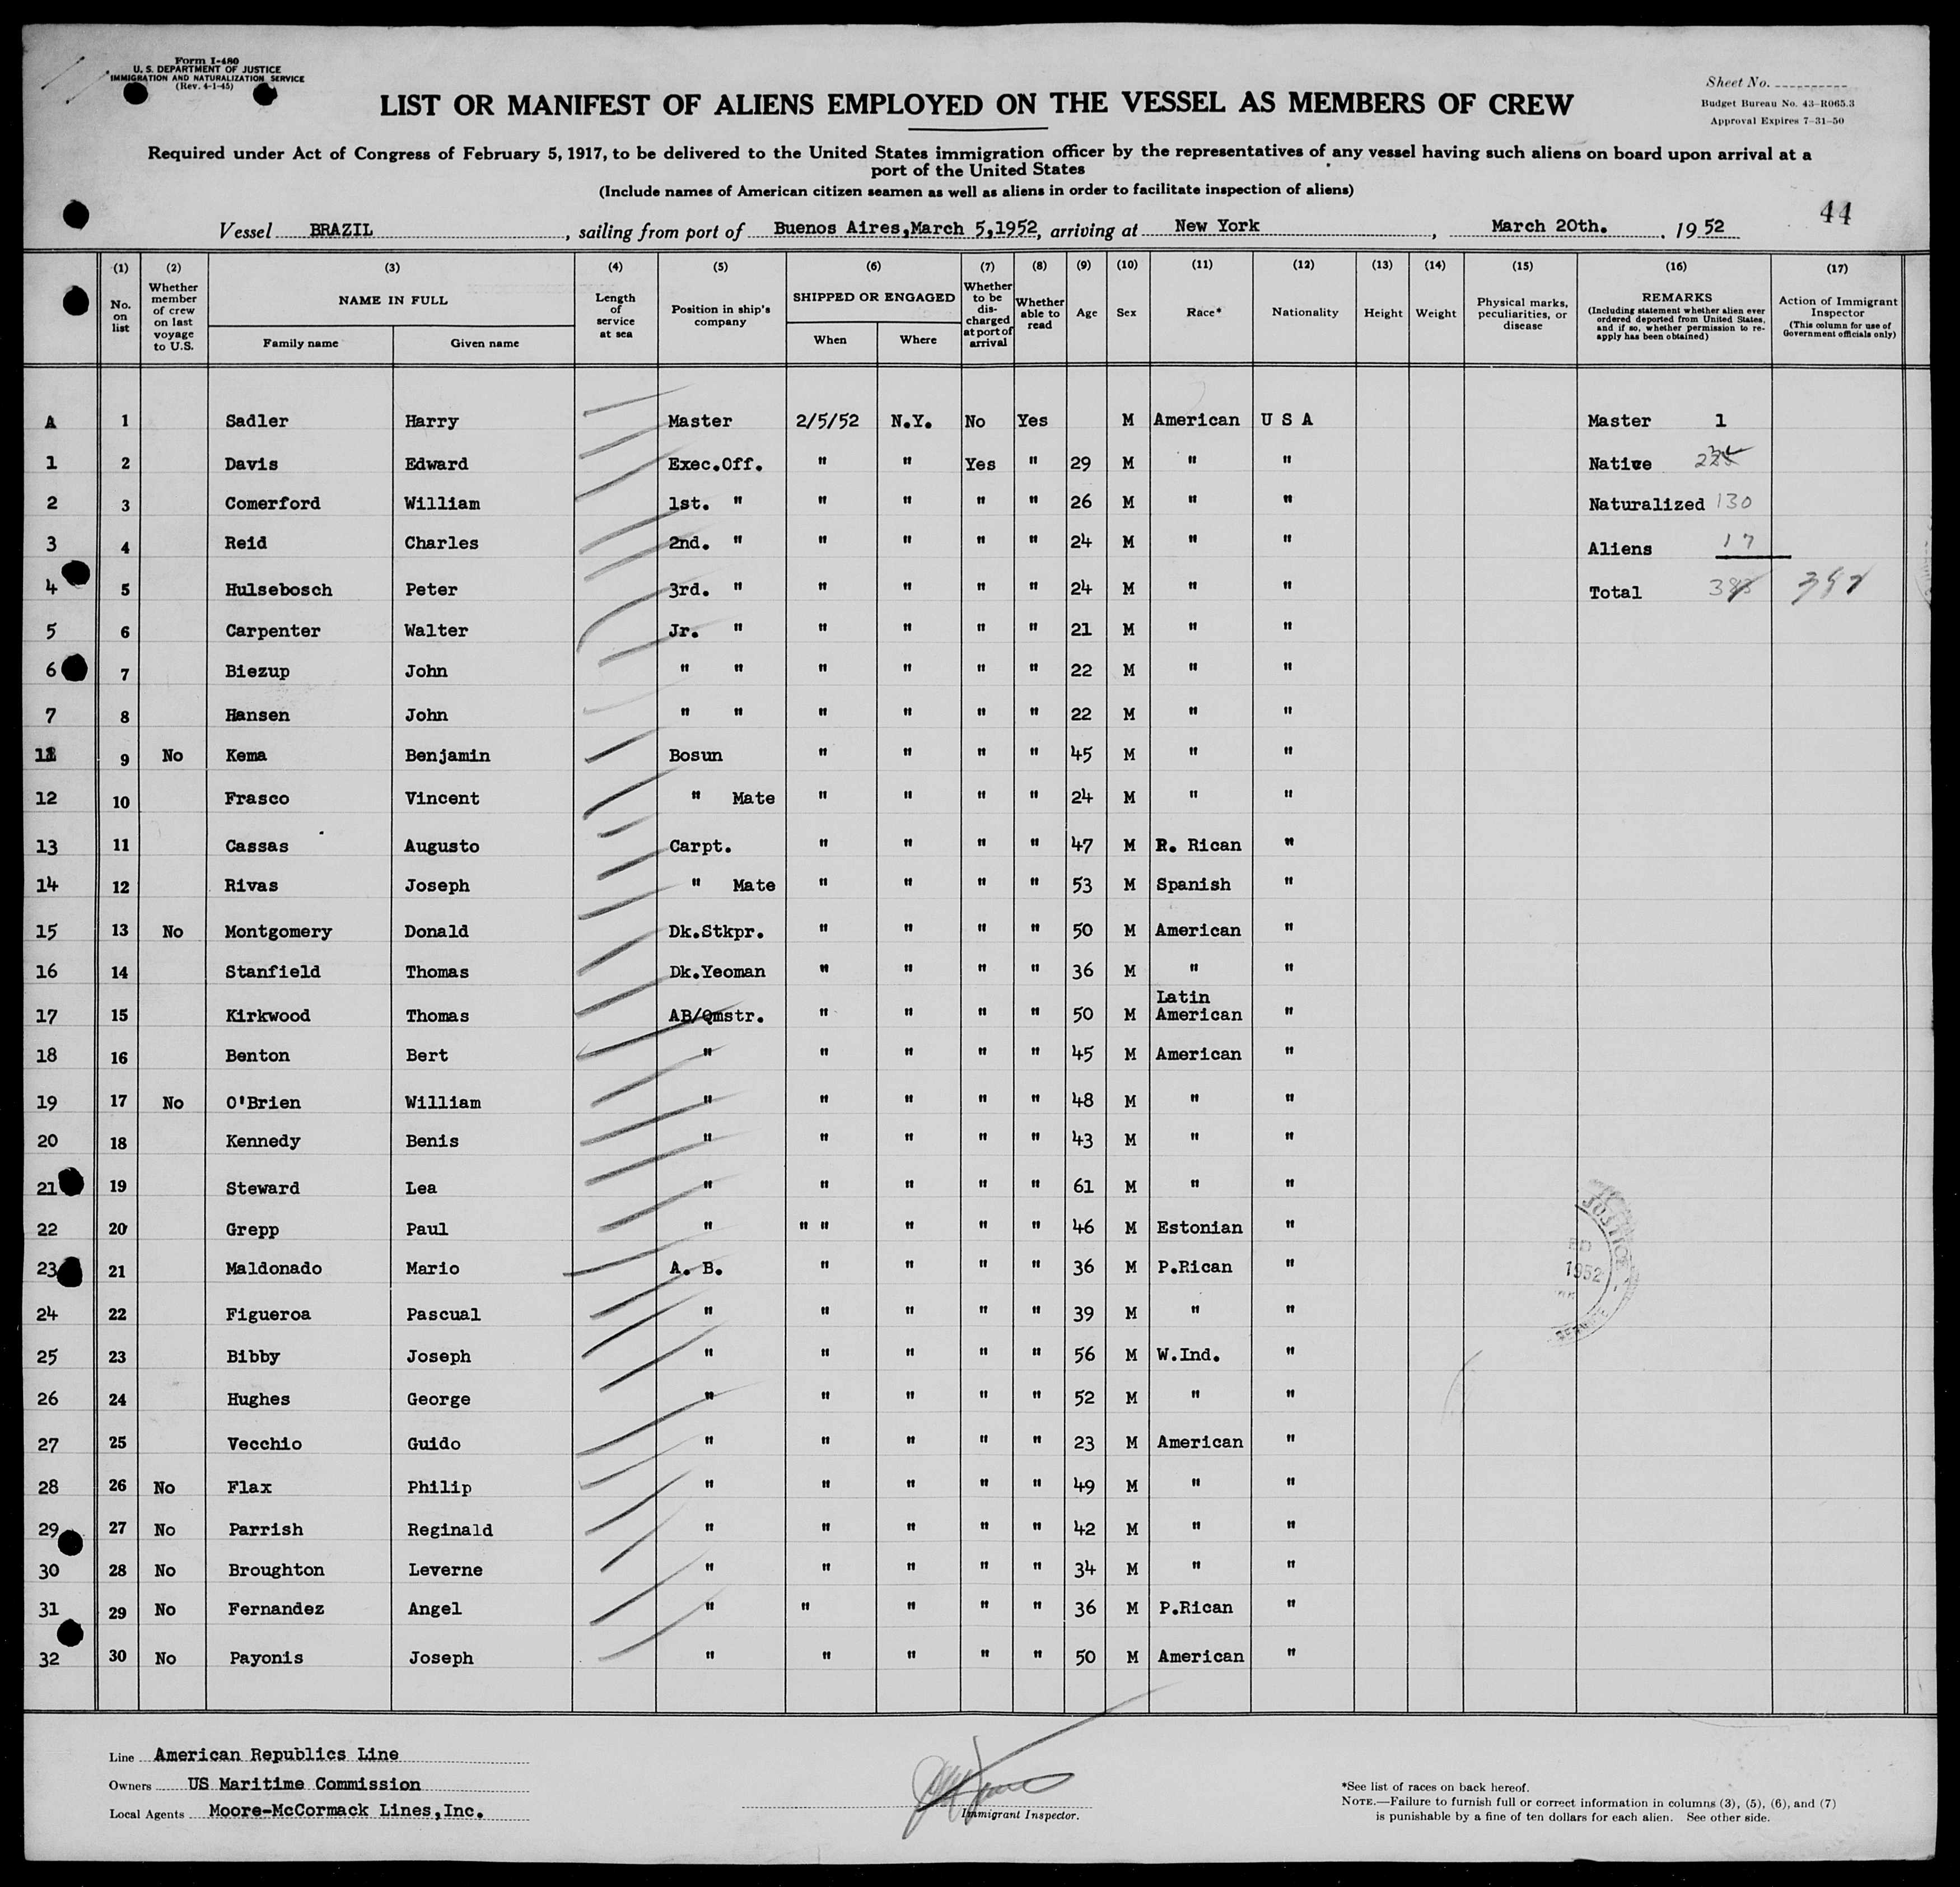 Form I-480
U. S. DEPARTMENT OF JUSTICE
IMMIGRATION AND NATURALIZATION SERVICE
(Rev. 4-1-45)
Sheet No.
Budget Bureau No. 43-R065.3
Approval Expires 7-31-50
LIST OR MANIFEST OF ALIENS EMPLOYED ON THE VESSEL AS MEMBERS OF CREW
Required under Act of Congress of February 5, 1917, to be delivered to the United States immigration officer by the representatives of any vessel having such aliens on board upon arrival at a
port of the United States
(Include names of American citizen seamen as well as aliens in order to facilitate inspection of aliens)
44
Vessel BRAZIL, sailing from port of Buenos Aires,March 5,1952, arriving at New York, March 20th., 1952
(1) (2) (3) (4) (5) (6) (7) (8) (9) (10) (11) (12) (13) (14) (15) (16) (17)
No. on list
Whether member of crew on last voyage to U.S.
NAME IN FULL
Family name Given name
Length of service at sea
Position in ship's company
SHIPPED OR ENGAGED
When Where
Whether to be discharged at port of arrival
Whether able to read
Age
Sex
Race*
Nationality
Height
Weight
Physical marks, peculiarities, or disease
REMARKS
(Including statement whether alien ever ordered deported from United States, and if so, whether permission to re-apply has been obtained)
Action of Immigrant Inspector
(This column for use of Government officials only)
A 1 Sadler Harry Master 2/5/52 N.Y. No Yes M American U S A Master 1
1 2 Davis Edward Exec.Off. " " Yes " 29 M " " Native
2 3 Comerford William 1st. " " " " " 26 M " " Naturalized 130
3 4 Reid Charles 2nd. " " " " " 24 M " " Aliens 17
4 5 Hulsebosch Peter 3rd. " " " " " 24 M " " Total
5 6 Carpenter Walter Jr. " " " " " 21 M " "
6 7 Biezup John " " " " " " 22 M " "
7 8 Hansen John " " " " " " 22 M " "
9 No Kema Benjamin Bosun " " " " 45 M " "
12 10 Frasco Vincent " Mate " " " " 24 M " "
13 11 Cassas Augusto Carpt. " " " " 47 M R. Rican "
14 12 Rivas Joseph " Mate " " " " 53 M Spanish "
15 13 No Montgomery Donald Dk.Stkpr. " " " " 50 M American "
16 14 Stanfield Thomas Dk.Yeoman " " " " 36 M " "
17 15 Kirkwood Thomas AB/Qmstr. " " " " 50 M Latin American "
18 16 Benton Bert " " " " " 45 M American "
19 17 No O'Brien William " " " " " 48 M " "
20 18 Kennedy Benis " " " " " 43 M " "
21 19 Steward Lea " " " " " 61 M " "
22 20 Grepp Paul " " " " " " 46 M Estonian "
23 21 Maldonado Mario A. B. " " " " 36 M P.Rican "
24 22 Figueroa Pascual " " " " " 39 M " "
25 23 Bibby Joseph " " " " " 56 M W.Ind. "
26 24 Hughes George " " " " " 52 M " "
27 25 Vecchio Guido " " " " " 23 M American "
28 26 No Flax Philip " " " " " 49 M " "
29 27 No Parrish Reginald " " " " " 42 M " "
30 28 No Broughton Leverne " " " " " 34 M " "
31 29 No Fernandez Angel " " " " " 36 M P.Rican "
32 30 No Payonis Joseph " " " " " 50 M American "
JUSTICE
1952
Line American Republics Line
Owners US Maritime Commission
Local Agents Moore-McCormack Lines,Inc.
Immigrant Inspector.
*See list of races on back hereof.
NOTE.—Failure to furnish full or correct information in columns (3), (5), (6), and (7)
is punishable by a fine of ten dollars for each alien. See other side.